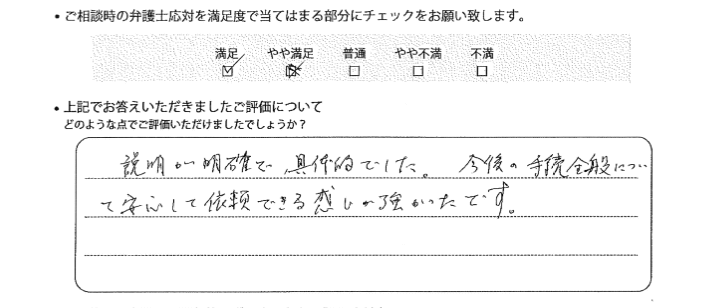 • ご相談時の弁護士応対を満足度で当てはまる部分にチェックをお願い致します。
満足 やや満足 普通 やや不満 不満
☑ ☑ □ □ □
• 上記でお答えいただきましたご評価について
どのような点でご評価いただけましたでしょうか？
説明が明確で、具体的でした。今後の手続全般につい
て安心して依頼できる感じが強かったです。